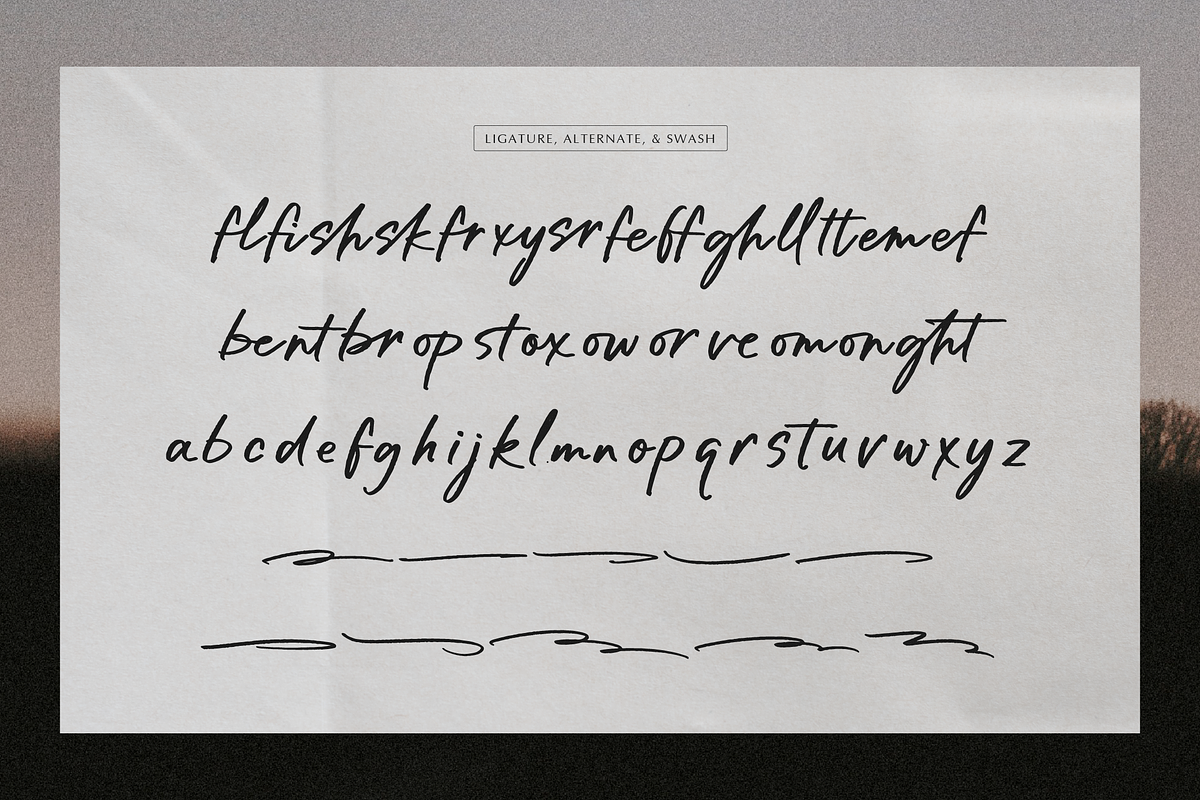 LIGATURE, ALTERNATE, & SWASH
flfishskfrxysrfeffghllttemef
bentbr op stox ow or ve omonght
abcdefghijklmnopqrstuvwxyz